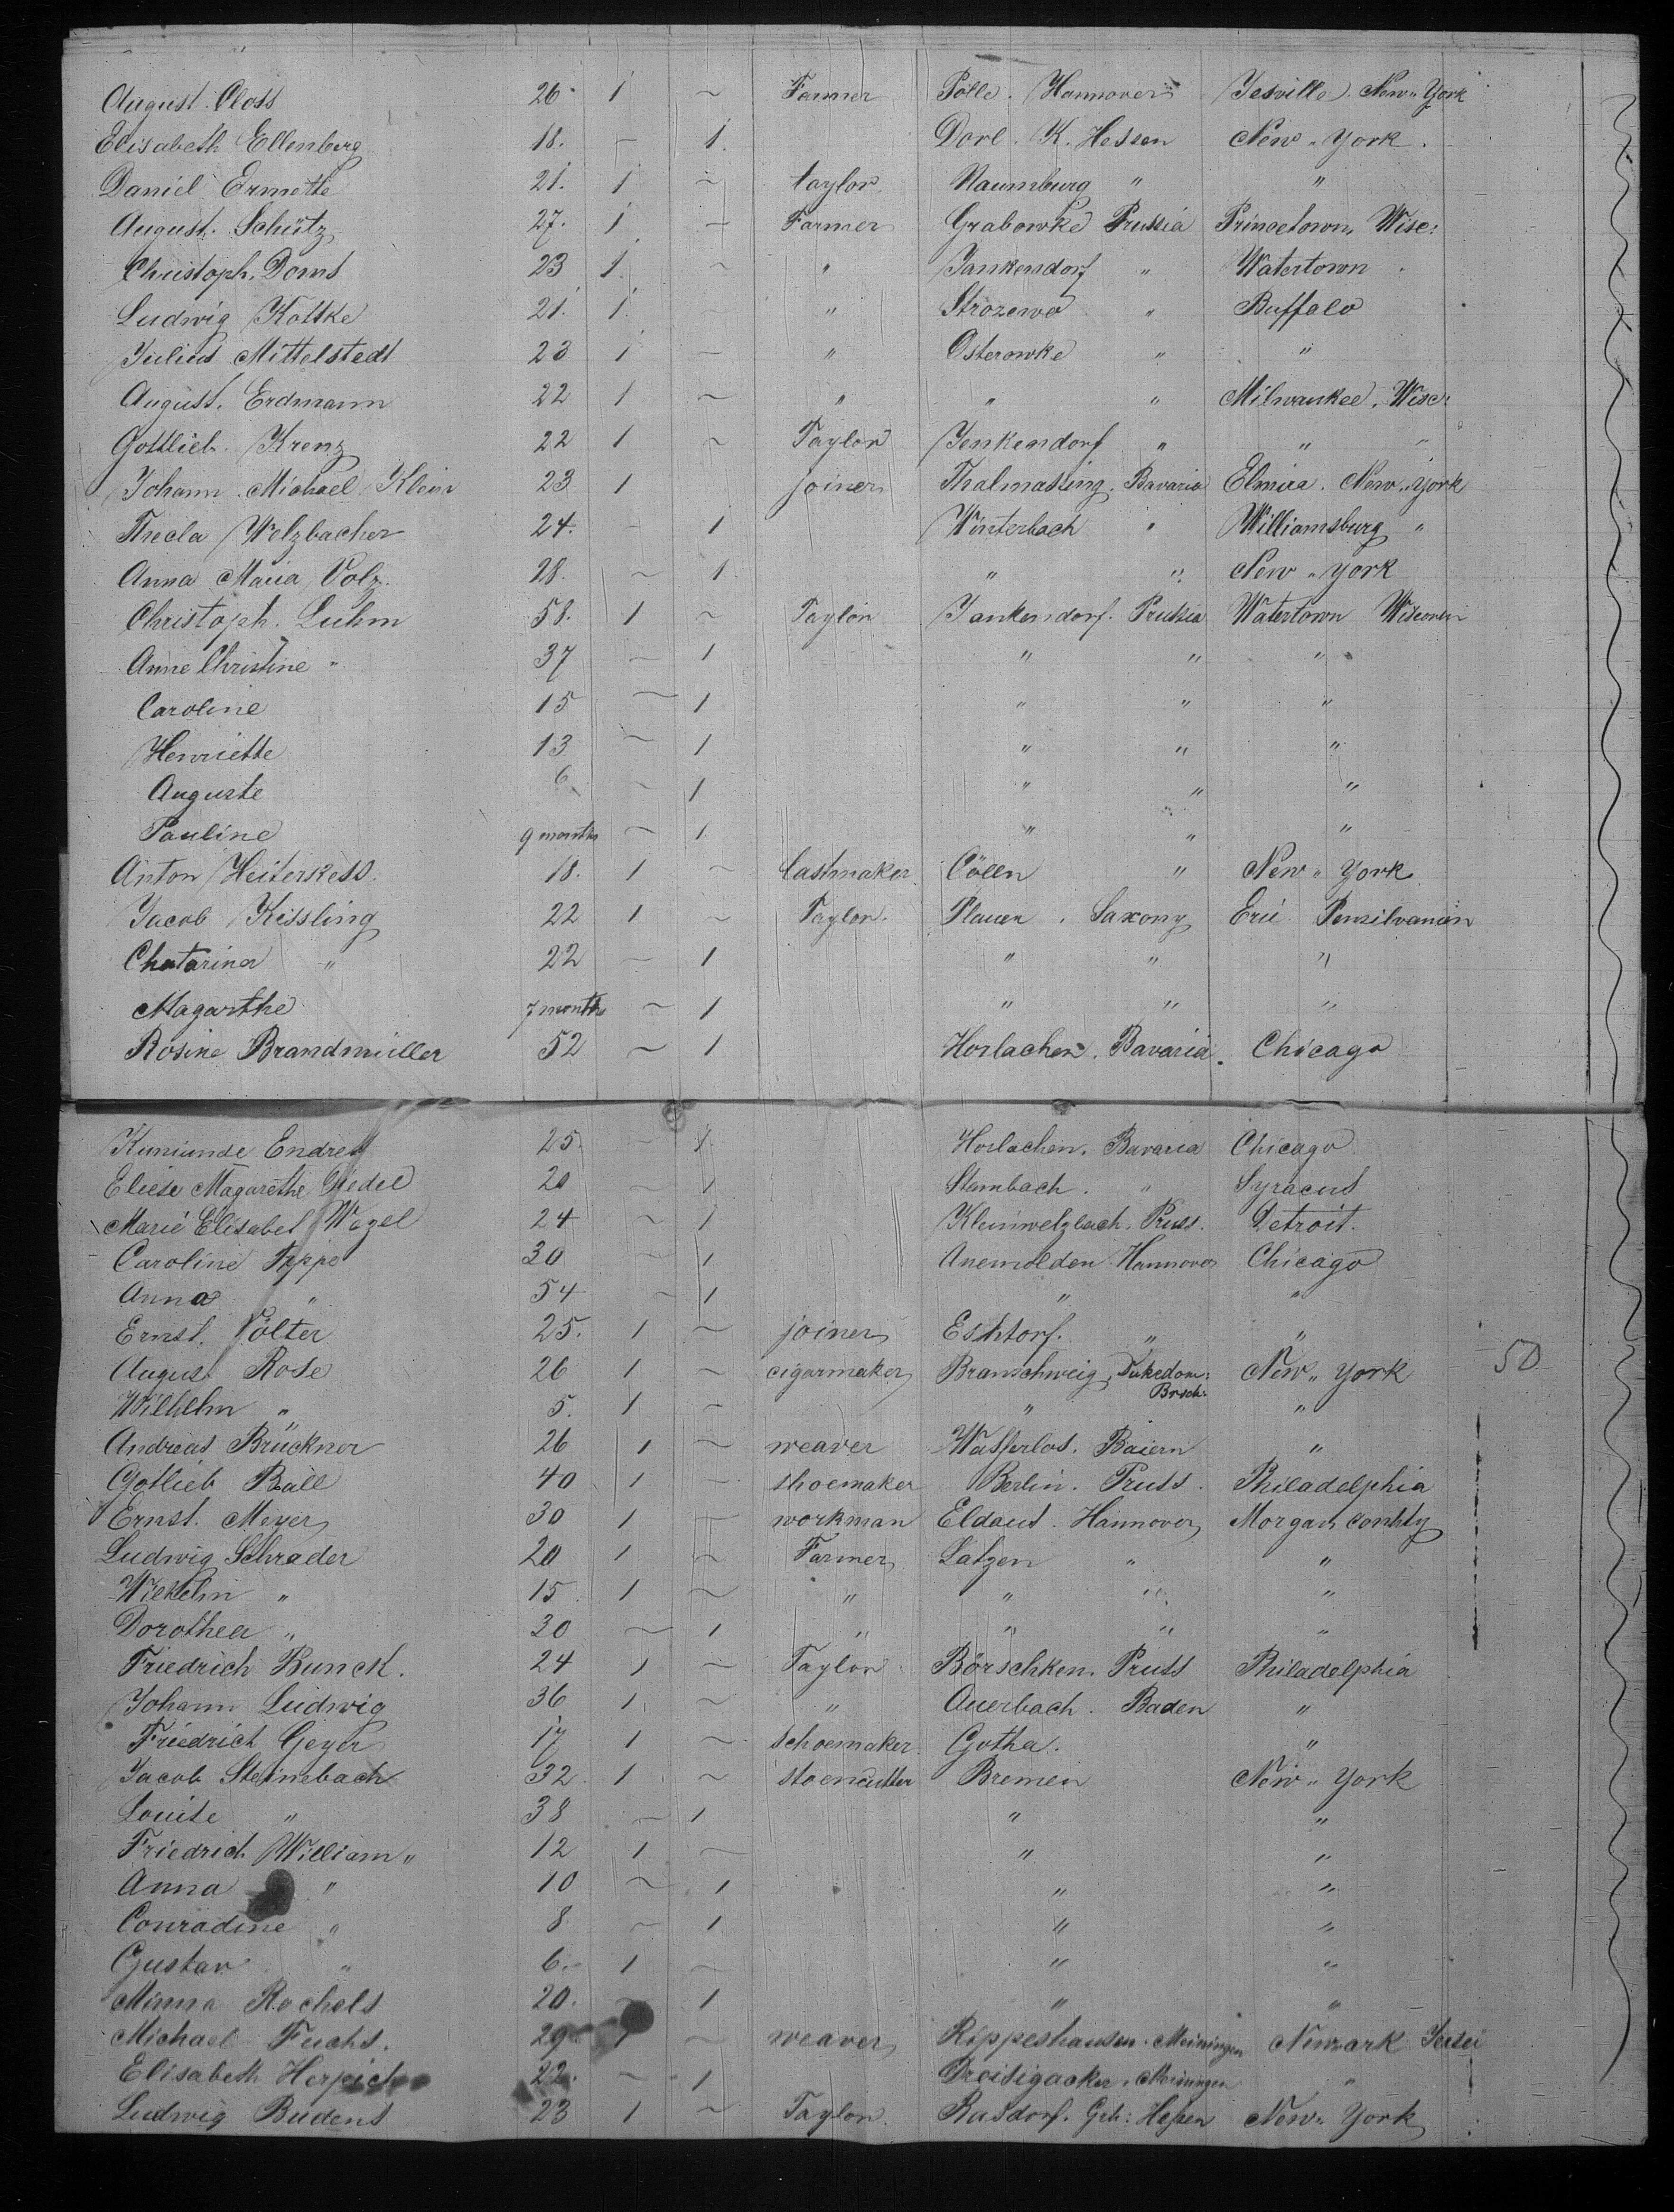 August Closs 26 1 ~ Farmer Polle. Hannover Jesville. New-York
Elisabeth Ellenberg 18. – 1. Dorl. K. Hessen New-York.
Daniel Ermette 21. 1 ~ taylor. Naumburg " "
August. Schütz 27. 1 – Farmer Grabowke Prussia Princetown, Wisc:
Christoph. Doms 23 1. ~ " Jankendorf " Watertown
Ludwig Kottke 21. 1. " Strozewo " Buffalo
Julius Mittelstedt 23 1 ~ " Osterowke " "
August. Erdmann 22 1 ~ " " " Milwaukee. Wisc:
Gottlieb. Krenz 22 1 ~ Taylor Jenkendorf " " "
Johann. Michael Klein 23 1 joiner Thalmassing. Bavaria Elmira. New-York
Thecla Welzbacher 24. – 1 Winterbach " Williamsburg "
Anna Maria Volz. 28. ~ 1 " " New-York
Christoph. Luhm 58. 1 ~ Taylor Jankendorf. Prussia Watertown Wisconsin
Anne Christine " 37 – 1 " " "
Caroline 15 ~ 1 " " "
Henriette 13 ~ 1 " " "
Auguste 6 ~ 1 " " "
Pauline 9 months ~ 1 " " "
Anton Heiterskess. 18. 1 ~ lastmaker Cölln " New-York
Jacob Kissling 22 1 ~ Taylor. Plauen. Saxony Erie Pensilvanien
Chatarina " 22 – 1 " " "
Magarthe 7 months ~ 1 " " "
Rosine Brandmüller 52 ~ 1 Horlachen. Bavaria. Chicago
Kuniunde Endres 25. ~ 1. Horlachen. Bavaria Chicago
Eliese Magarethe Giedel 20 ~ 1 Stambach. " Syracus
Marie Elisabet Wagel 24 ~ 1 Kleinwelzbach. Pruss. Detroit.
Caroline Toppe 30 ~ 1 Anemolden Hannover Chicago
Anna " 54 ~ 1 " "
Ernst. Völter 25. 1 ~ joiner Eshtorf. " "
August Rose 26 1 ~ cigarmaker Branschweig, Dukedom: New-York 50
Brsch:
Wilhelm " 5. 1 ~ " "
Andreas Brückner 26 1 ~ weaver Wasserlos. Baiern "
Gotlieb Ball 40 1 ~ shoemaker Berlin. Pruss. Philadelphia
Ernst. Meyer 30 1 ~ workman Eldaus. Hannover Morgan conhty
Ludwig Schrader 20 1 ~ Farmer Latzen " "
Wilhelm " 15 1 ~ " " " "
Dorothea " 30 ~ 1 " " " "
Friedrich Bunck. 24 1 ~ Taylor Börschken. Pruss Philadelphia
Johann Ludwig 36 1. ~ " Auerbach. Baden "
Friedrich Geyer 17 1 ~ schoemaker. Gotha. "
Jacob Steinebach 32. 1. ~ stoencutter Bremen New-York
Louise " 38 ~ 1 " "
Friedrich William " 12 1 ~ " "
Anna " 10 ~ 1 " "
Conradine " 8 ~ 1 " "
Gustav " 6. 1 ~ " "
Minna Rochels 20. 1 " "
Michael Fuchs. 29 1 ~ weaver Rippeshausen. Meiningen Newark Jersei
Elisabeth Herpich 22. ~ 1 Dreisigacker. Meiningen "
Ludwig Budens 23 1 ~ Taylor. Rasdorf. Grh: Hessen New-York